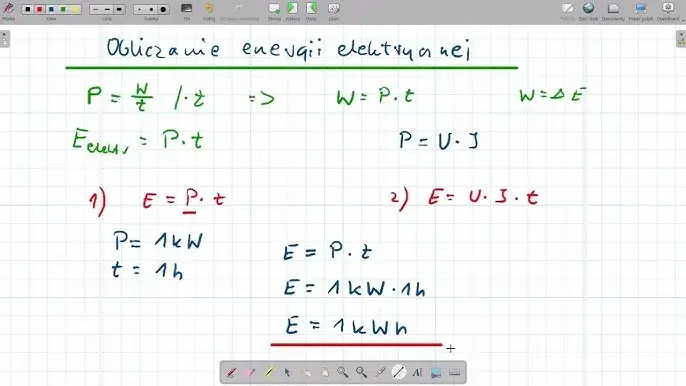 Obliczanie energii elektrycznej
P = W/t /·t => W = P·t W = Δ E
Eelektr = P·t P = U·I
1) E = P·t 2) E = U·I·t
P = 1kW
t = 1h
E = P·t
E = 1kW·1h
E = 1kWh